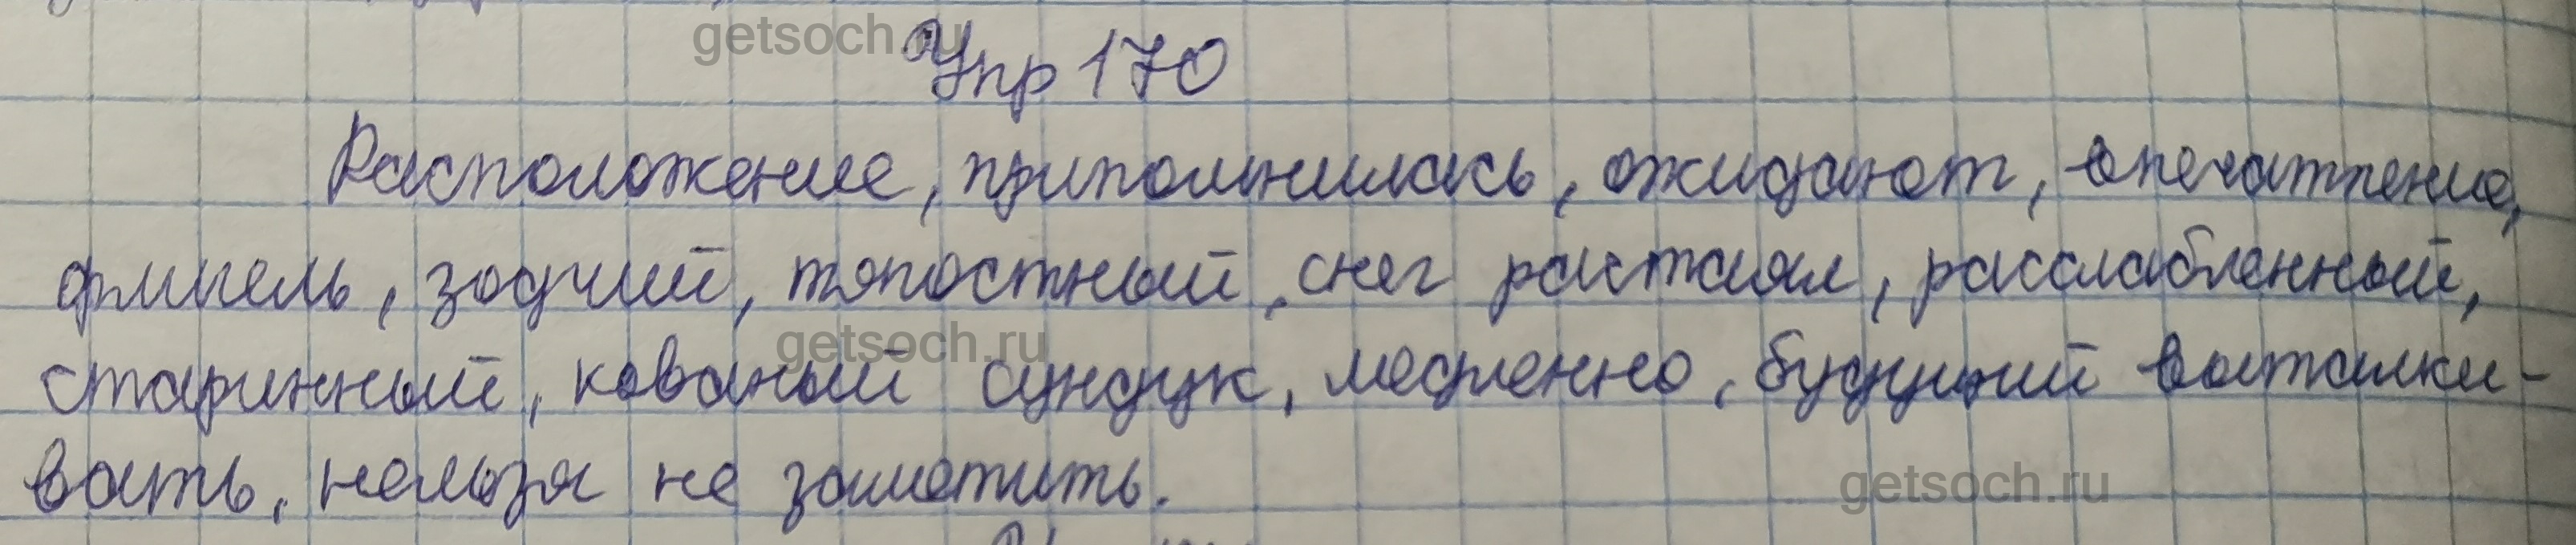 getsoch.ru
Упр 170
Расположение, приполнилась, ожидают, впечатление,
флигель, зодчий, тягостный, снег растаял, расслабленный,
getsoch.ru
старинный, кованый сундук, медленно, будущий выталки-
вать, нельзя не заметить.
getsoch.ru